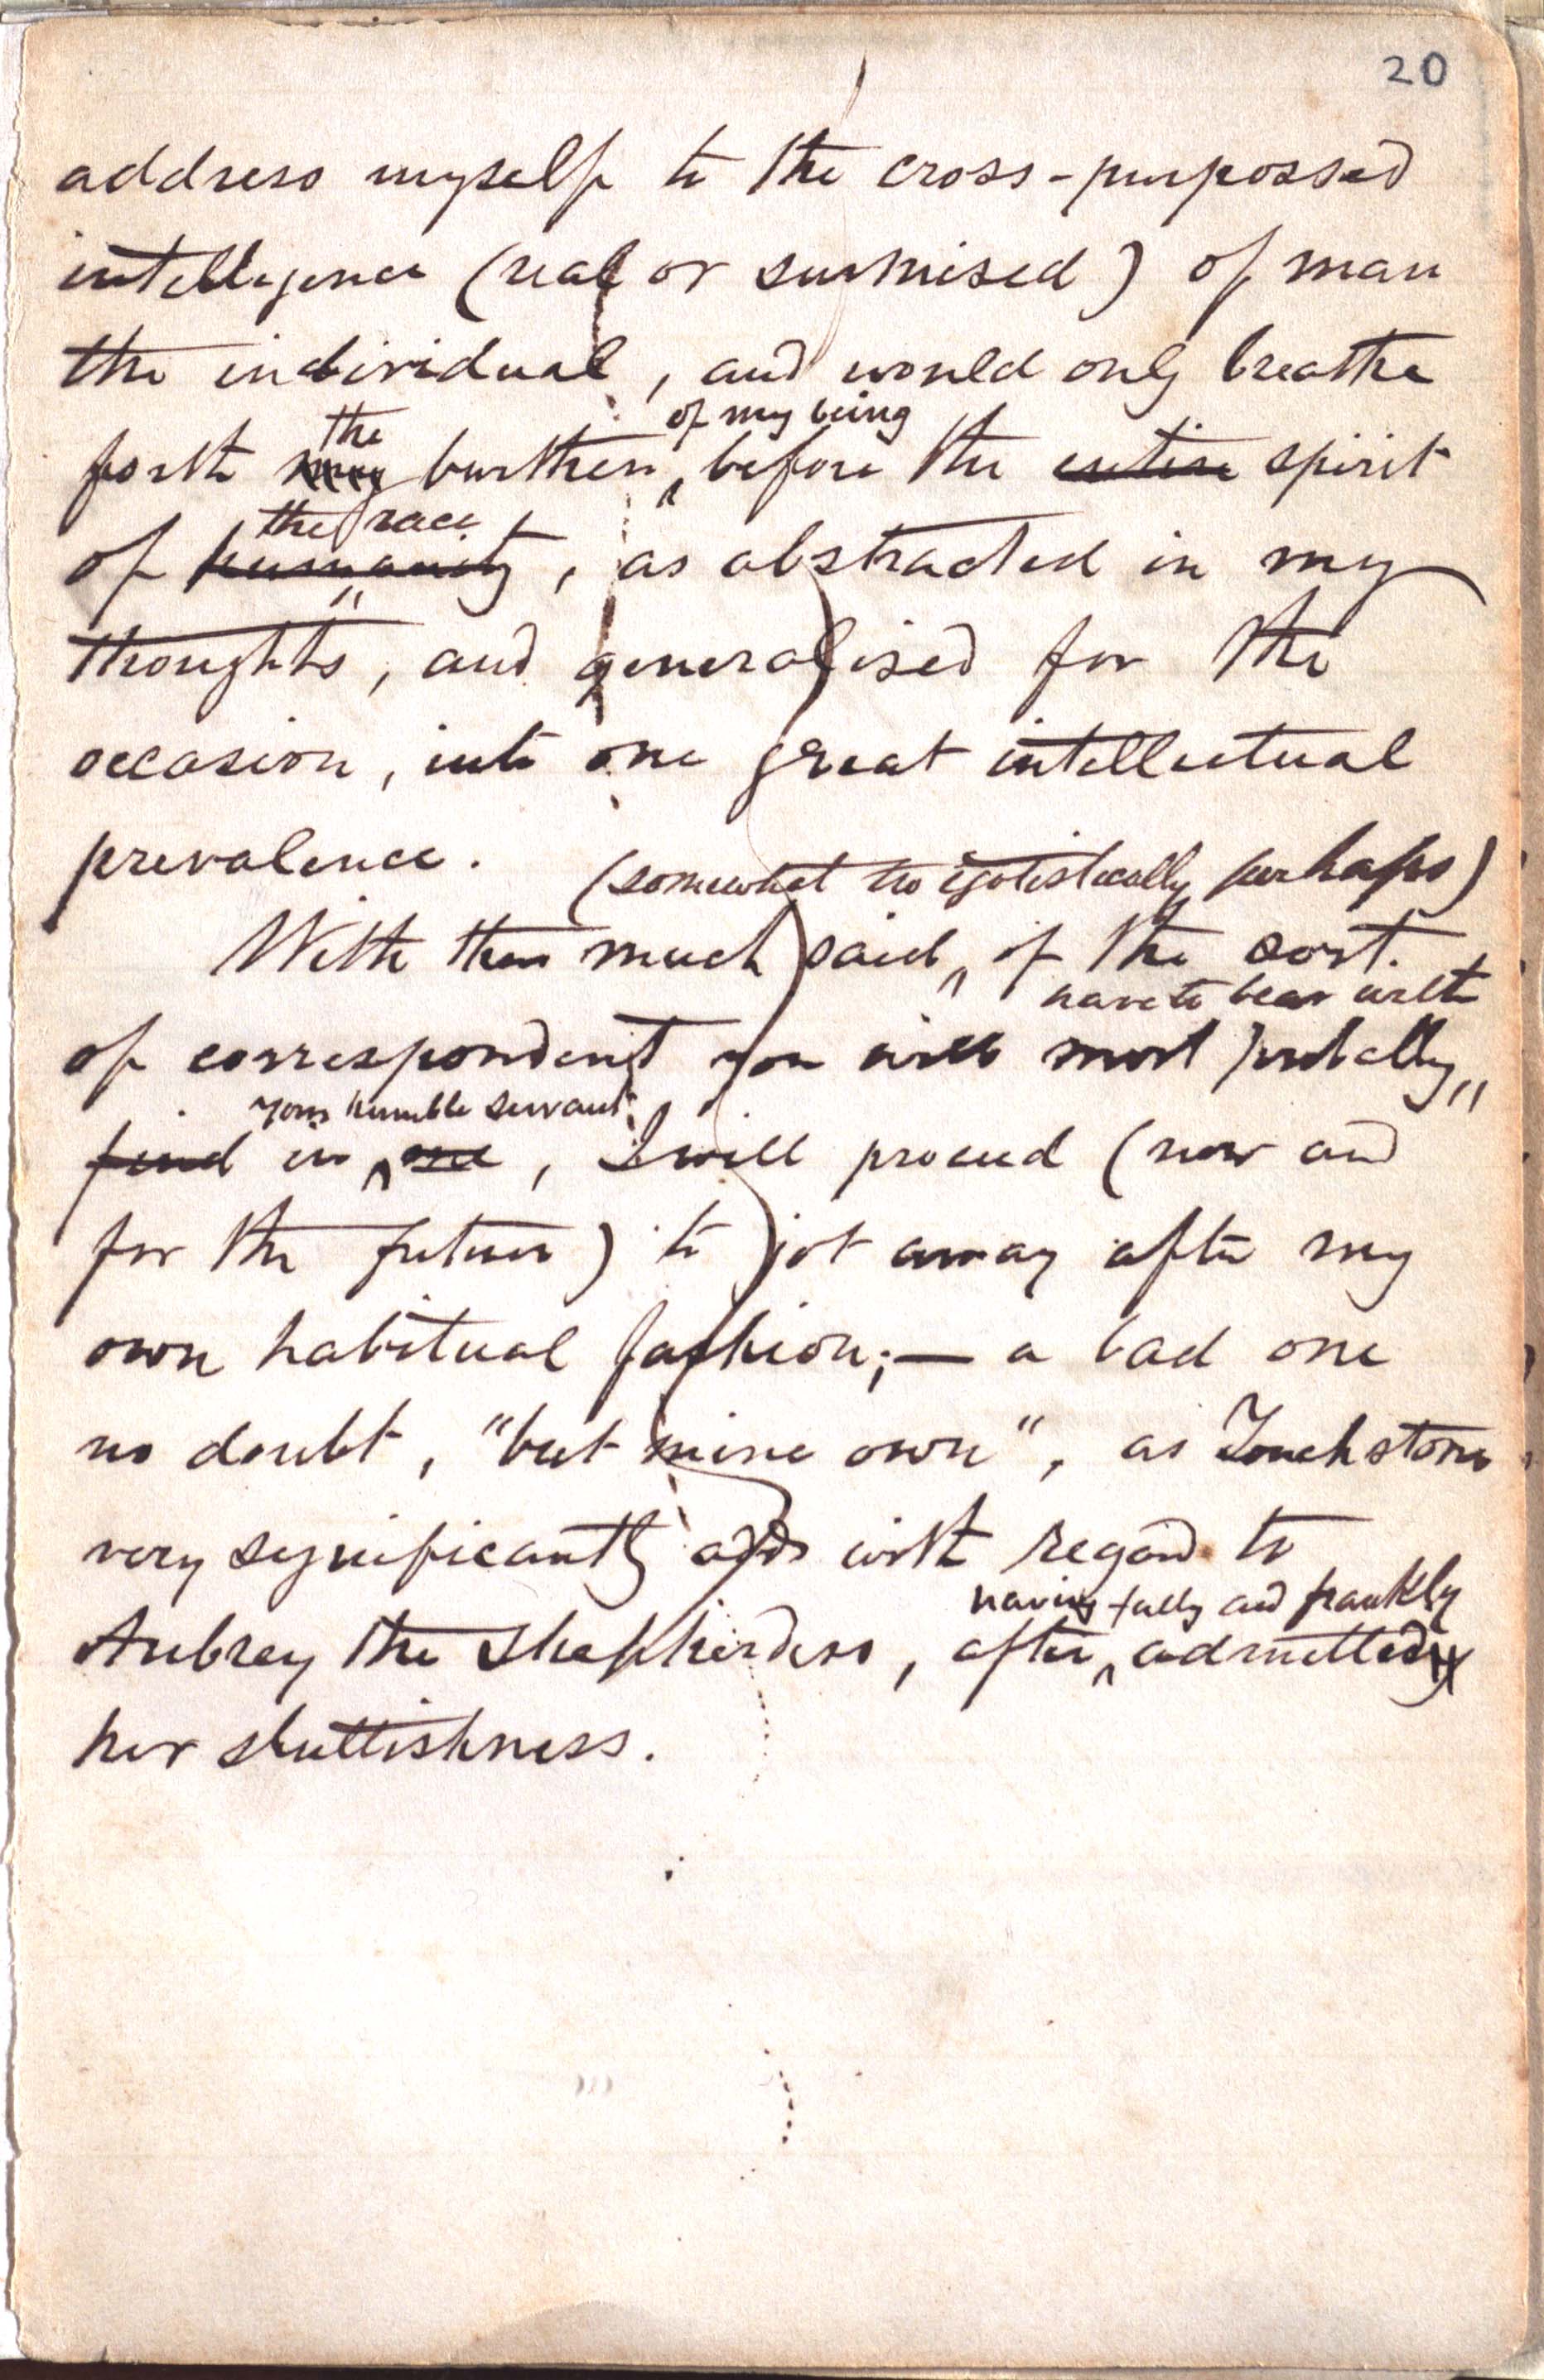 20
address myself to the cross-purpossed
intelligence (real or surmised) of man
the individual, and would only breathe
the of my being
forth my burthen, before the entire spirit
the race
of humanity, as abstracted in my
thoughts, and generalised for the
occasion, into one great intellectual
prevalence.
(somewhat too egotistically perhaps)
With thus much said, of the sort
have to bear with
of correspondent you will most probably
your humble servant
find in me, I will proceed (now and
for the future) to jot away after my
own habitual fashion;— a bad one
no doubt, "but mine own", as Touchstone
very significantly adds with regard to
having fully and frankly
Aubrey the Shepherdess, after admitted
her sluttishness.